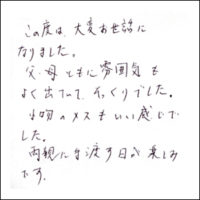 この度は、大変お世話に
なりました。
父・母ともに雰囲気も
よく出ていて、そっくりでした。
小物のメスもいい感じで
した。
両親に手渡す日が楽しみ
です。